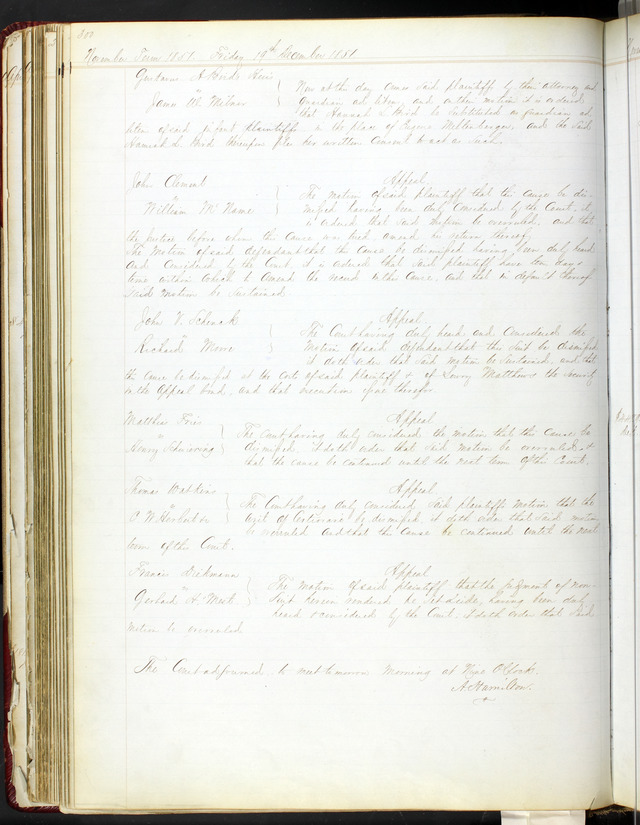 300
November Term 1851 Friday 19th December 1851
Gustavus A Bird's Heirs
James M. Milnor
Now at this day comes said plaintiffs by their attorney and
Guardian ad litem, and on their motion it is ordered
that Hannah L Bird be substituted as guardian ad
litem of said infant plaintiffs in the place of Eugene Miltenberger, and the said
Hannah L. Bird thereupon files her written consent to act as such.
John Clement
vs
William McName
Appeal
The motion of said plaintiff that the cause be dis-
missed having been duly considered by the Court, it
is ordered that said motion be overruled, and that
the Justice before whom this cause was tried amend his return thereof
The Motion of said defendant that the cause be dismissed having been duly heard
and considered by the Court, it is ordered that said plaintiff have ten days
time within which to amend the record in this cause, and that in default thereof
said motion be sustained
John V. Schenck
vs
Richard Moore
Appeal
The Court having duly heard and considered the
Motion of said defendant that this suit be dismissed
it doth order that said motion be sustained, and that
the cause be dismissed at the costs of said plaintiff & of Matthews the security
in the Appeal bond, and that execution issue therefor
Matthew Fries
vs
Henry Schwiering
Appeal
The Court having duly considered the motion that this cause be
dismissed, it doth order that said motion be overruled, &
that the cause be continued until the next term of this Court.
Thomas Watkins
vs
C W
Appeal
The Court having duly considered said plaintiffs motion that the
writ of Certiorari be dismissed, it doth order that said motion
be overruled and that this cause be continued until the next
term of this Court.
Francis Diekmann
vs
Gerhard H. West
Appeal
The motion of said plaintiff, that the judgment of non-
suit herein rendered be set aside, having been duly
heard & considered by the Court, it doth order that said
motion be overruled
The Court adjourned to meet tomorrow Morning at Nine O'Clock.
A. Hamilton.